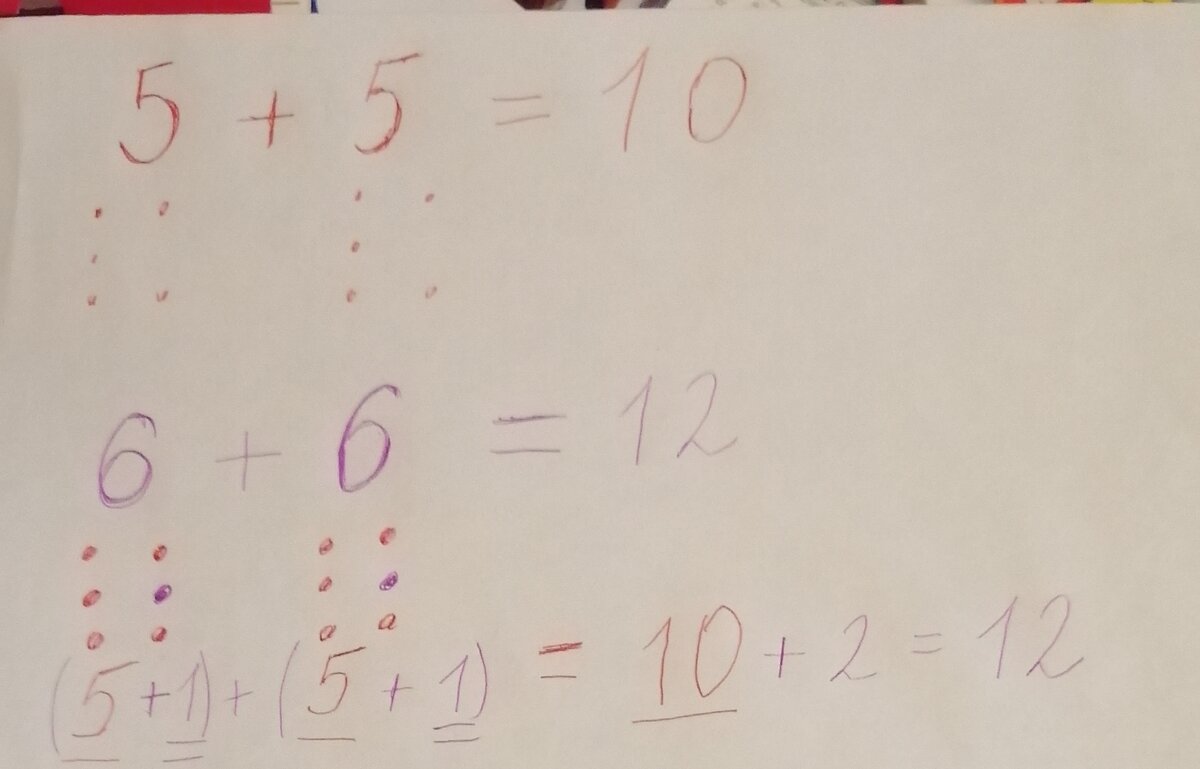 5 + 5 = 10
6 + 6 = 12
(5 + 1) + (5 + 1) = 10 + 2 = 12